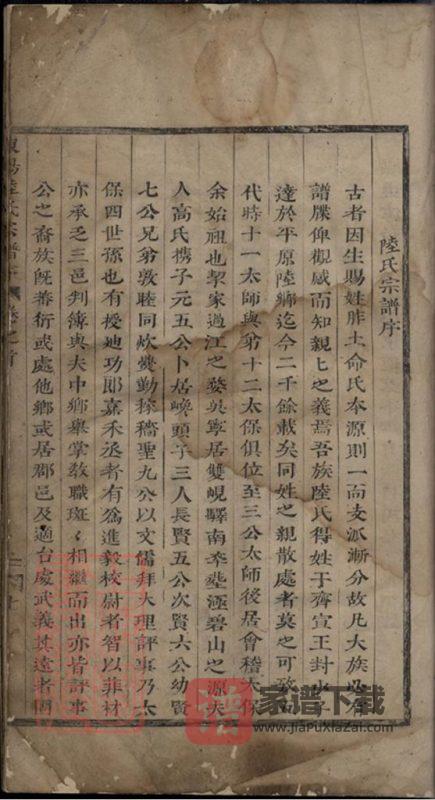 陸氏宗譜序
古者因生賜姓胙土命氏本源則一而支派漸分故凡大族必有
譜牒仰觀感而知親上之義焉吾族陸氏得姓于齊宣王封少子
達於平原陸鄉迄今二千餘載矣同姓之親散處者莫之可
代時十一太師與弟十二太保俱位至三公太師後居會稽太保
余始祖也挈家過江之婺吳寧居雙峴驛南奉塋極碧山之源夫
人高氏攜子元五公卜居峻頭子三人長賢五公次賢六公幼賢
七公兄弟敦睦同炊爨勤稼穡聖九公以文儒拜大理評事乃太
保四世孫也有授迪功郎嘉禾丞者有為進毅校尉者智以菲材
亦承乏三邑判簿與夫中鄉舉掌教職斑斑相繼而出亦皆評事
公之裔族既蕃衍或處他鄉或居郡邑及適台處武義其遠者
陽陸氏宗譜
卷之首
譜
家谱下载
www.jiaPuXiaZai.com